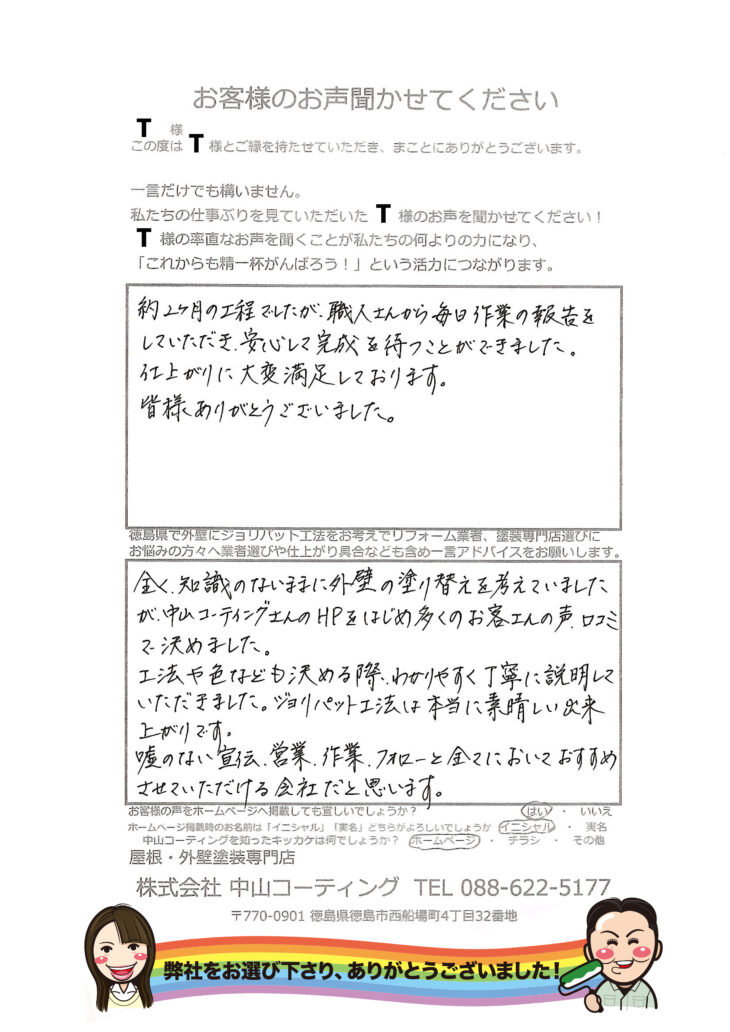 お客様のお声聞かせてください
T 様
この度は T 様とご縁を持たせていただき、まことにありがとうございます。
一言だけでも構いません。
私たちの仕事ぶりを見ていただいた T 様のお声を聞かせてください！
T 様の率直なお声を聞くことが私たちの何よりの力になり、
「これからも精一杯がんばろう！」という活力につながります。
約2ヶ月の工程でしたが、職人さんから毎日作業の報告を
していただき、安心して完成を待つことができました。
仕上がりに大変満足しております。
皆様ありがとうございました。
徳島県で外壁にジョリパット工法をお考えでリフォーム業者、塗装専門店選びに
お悩みの方々へ業者選びや仕上がり具合なども含め一言アドバイスをお願いします。
全く、知識のないままに外壁の塗り替えを考えていました
が、中山コーティングさんのHPをはじめ多くのお客さんの声、口コミ
で決めました。
工法や色なども決める際、わかりやすく丁寧に説明して
いただきました。ジョリパット工法は本当に素晴しい出来
上がりです。
嘘のない宣伝、営業、作業、フォローと全てにおいておすすめ
させていただける会社だと思います。
お客様の声をホームページへ掲載しても宜しいでしょうか？ はい ・ いいえ
ホームページ掲載時のお名前は「イニシャル」「実名」どちらがよろしいでしょうか イニシャル ・ 実名
中山コーティングを知ったキッカケは何でしょうか？ ホームページ ・ チラシ ・ その他
屋根・外壁塗装専門店
株式会社 中山コーティング TEL 088-622-5177
〒770-0901 徳島県徳島市西船場町4丁目32番地
弊社をお選び下さり、ありがとうございました！